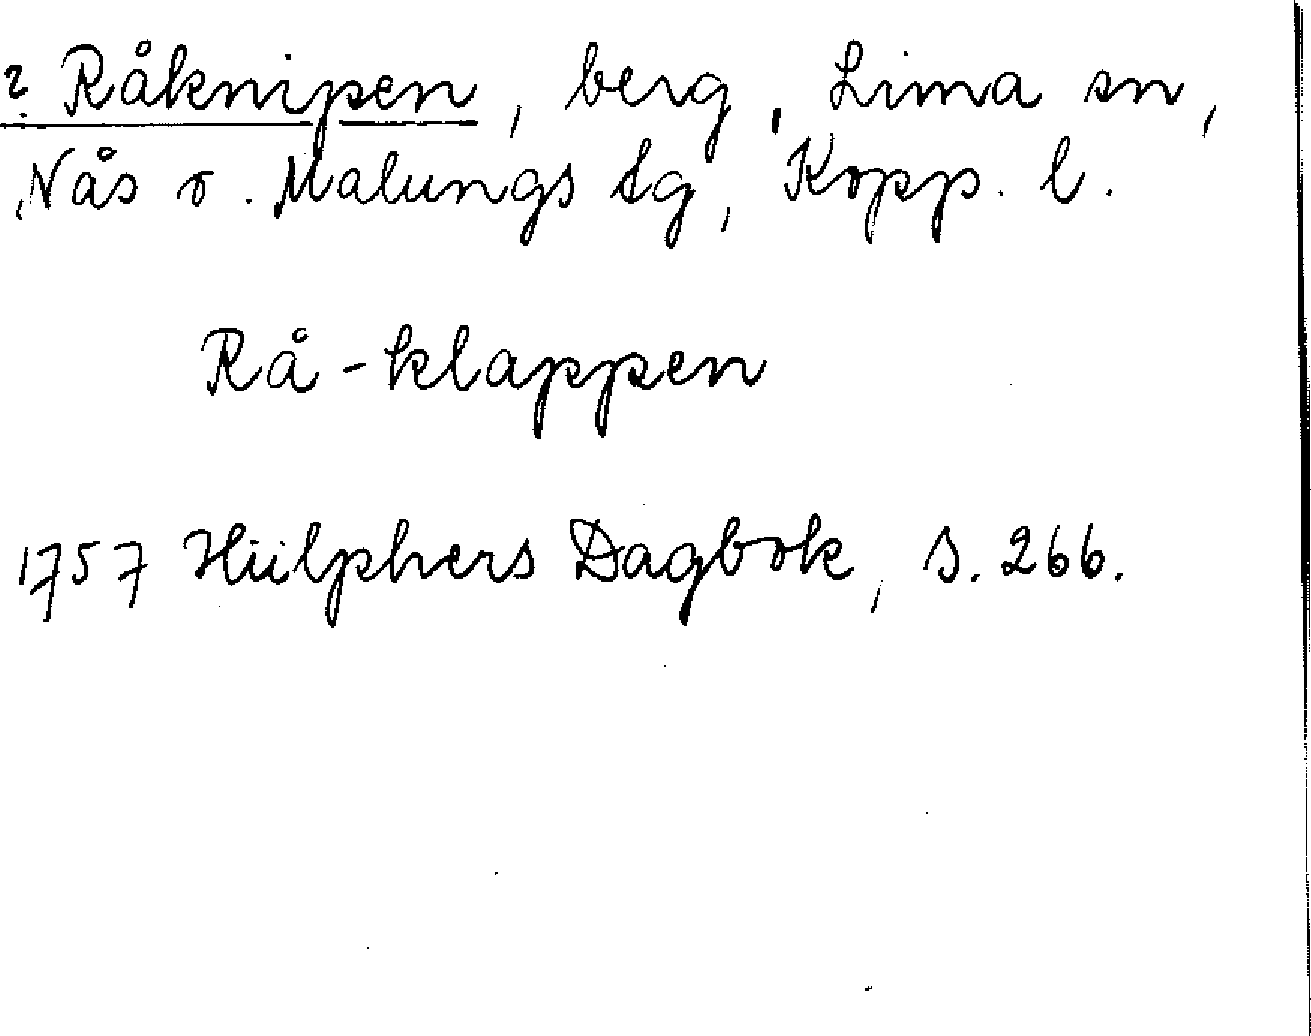 ? Råknipen, berg, Lima sn,
Nås o. Malungs tg, Kopp. l.
Rå-klappen
1757 Hülphers Dagbok, s. 266.